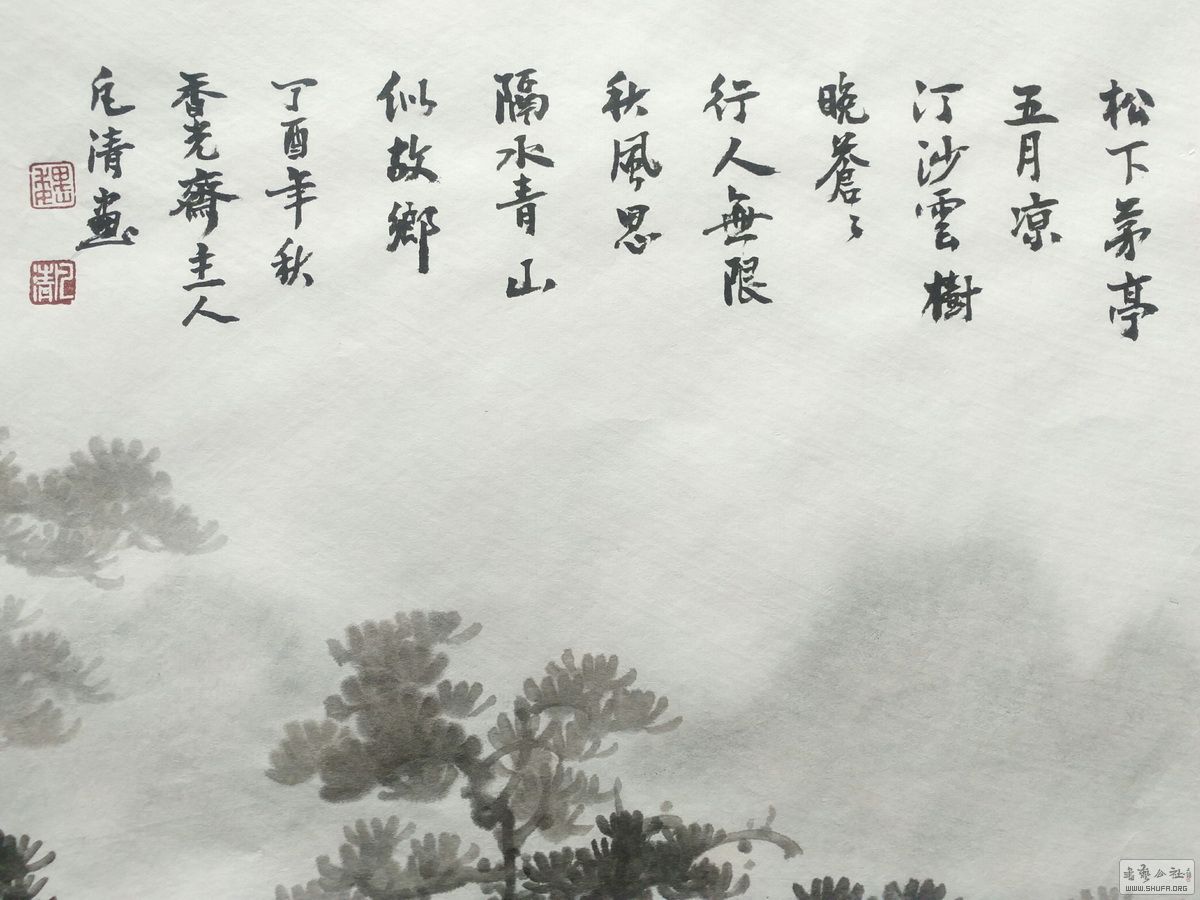 松下茅亭
五月凉
汀沙雲樹
晚蒼々
行人無限
秋風思
隔水青山
似故鄉
丁酉年秋
香光齋主人
凡清畫
魏
凡清
書藝公社
WWW.SHUFA.ORG